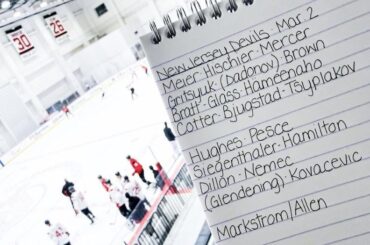 New Jersey Devils · Mar. 2
Meier · Hischier · Mercer
Gritsyuk · (Dadonov) · Brown
Bratt · Glass · Hameenaho
Cotter · Bjugstad · Tsyplakov
Hughes · Pesce
Siegenthaler · Hamilton
Dillon · Nemec
(Glendening) · Kovacevic
Markstrom/Allen
30
26